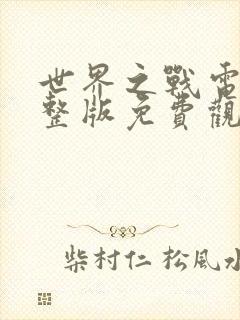 世界之戰電
整版免費觀
柴村仁 松風水